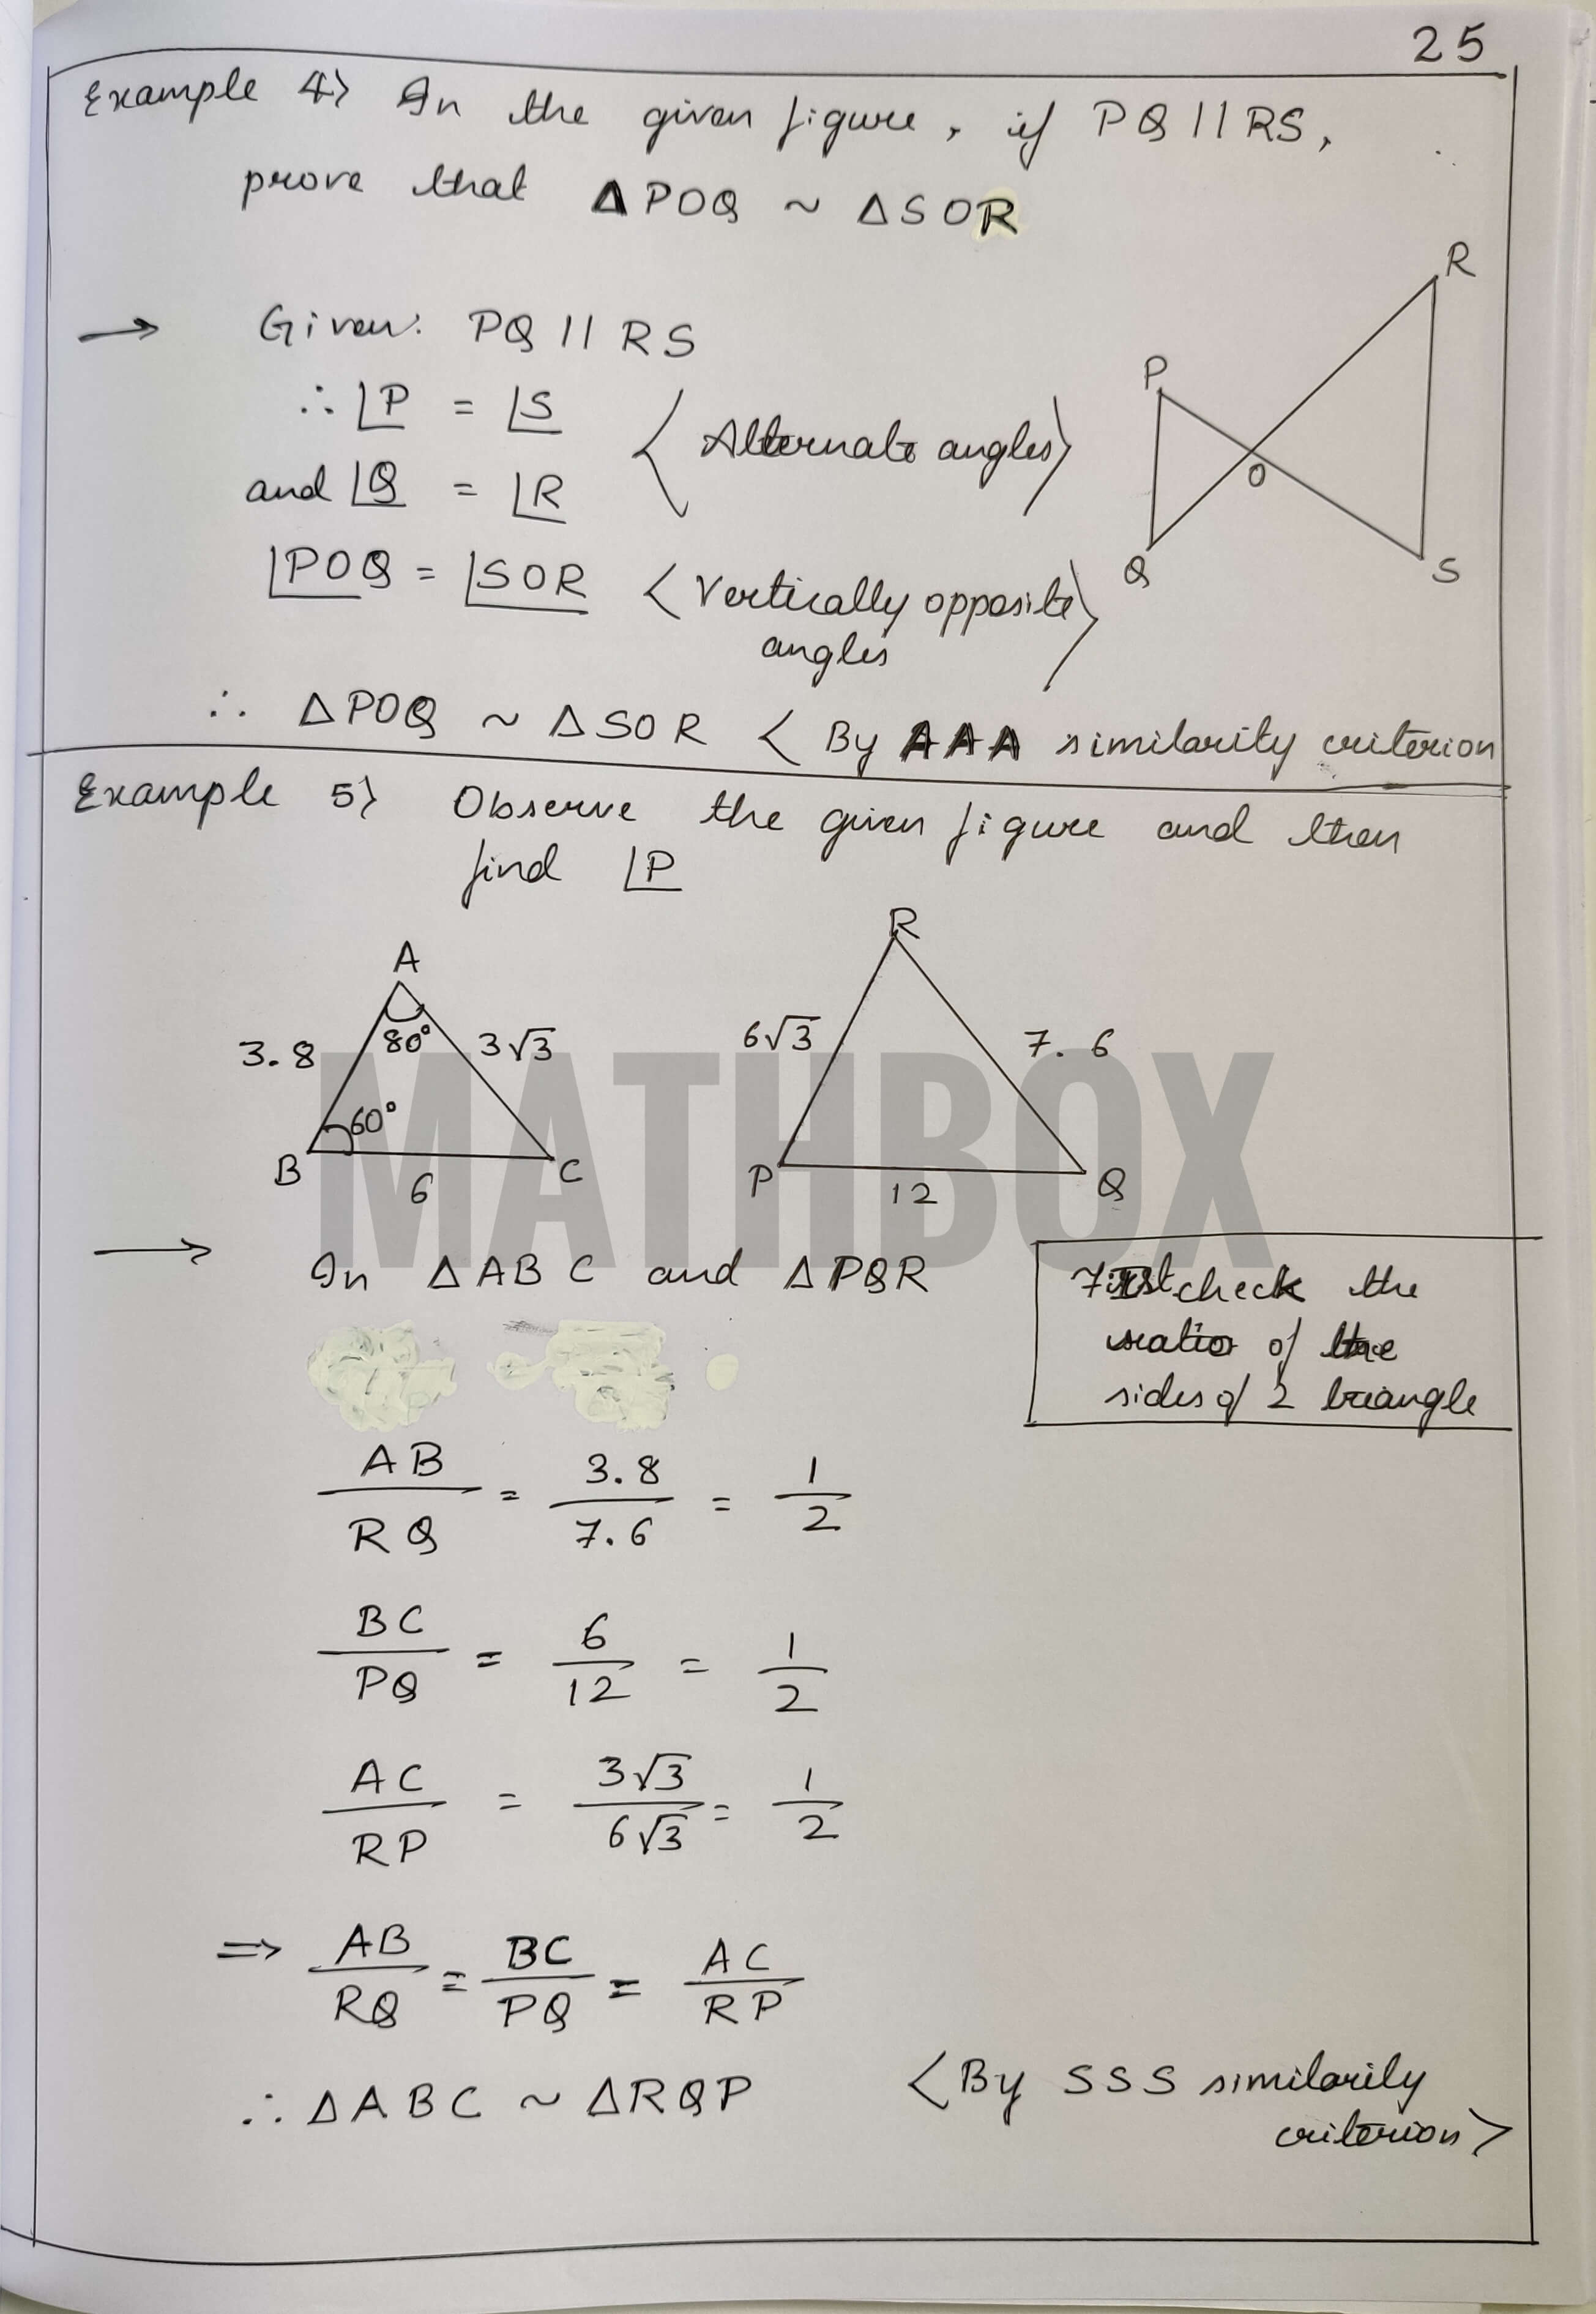 25
Example 4> In the given figure, if PQ || RS,
prove that ΔPOQ ~ ΔSOR
→ Given: PQ || RS
∴ ∠P = ∠S
and ∠Q = ∠R
<Alternate angles>
∠POQ = ∠SOR <Vertically opposite
angles>
∴ ΔPOQ ~ ΔSOR < By AAA similarity criterion
R
P
O
Q
S
Example 5> Observe the given figure and then
find ∠P
A
80°
3.8
3√3
60°
B
6
C
R
6√3
7.6
P
12
Q
MATHBOX
→ In ΔABC and ΔPQR
First check the
ratio of the
sides of 2 triangle
AB/RQ = 3.8/7.6 = 1/2
BC/PQ = 6/12 = 1/2
AC/RP = 3√3/6√3 = 1/2
⇒ AB/RQ = BC/PQ = AC/RP
∴ ΔABC ~ ΔRQP <By SSS similarity
criterion>